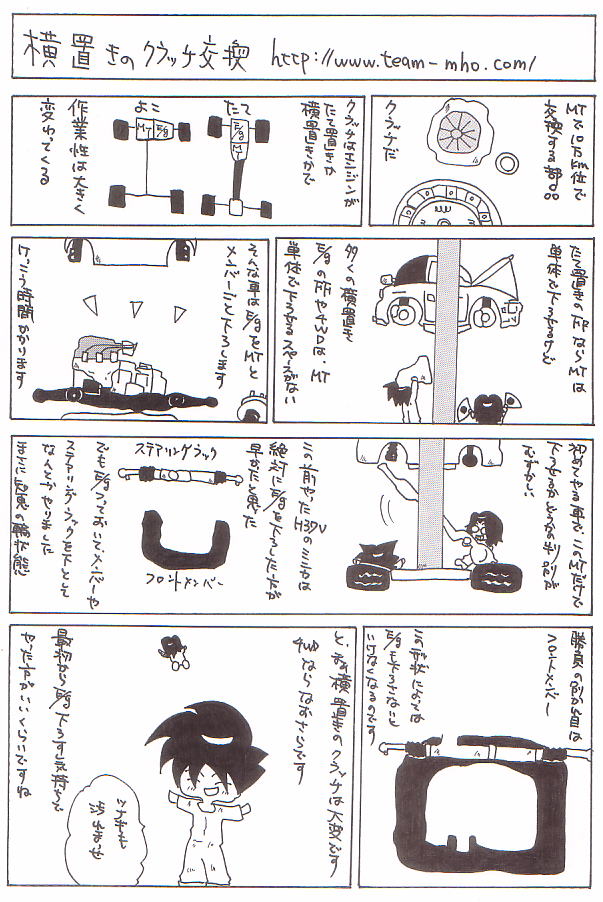 横置きのクラッチ交換 http://www.team-mho.com/
MTで10万km位で
交換する部品
クラッチだ
クラッチはエンジンが
たて置きか
横置きかで
たて
E/g
MT
よこ
MT
E/g
作業性は大きく
変わってくる
たて置きのFRならMTは
単体で下ろせるけど
多くの横置き
E/gのFFや4WDは、MT
単体で下ろせるスペースがない
そんな車はE/gをMTと
メンバーごと下ろします
けっこう時間かかります
初めてやる車で、このMTだけで
下ろせるかどうかの判別が
むずかしい
この前やったH37Vのミニカは
絶対にE/gを下ろした方が
早かたと思った
ステアリングラック
フロントメンバー
でもE/gつっておいて、メンバーや
ステアリングラックを下として
なんとかやりました
まさに知恵の輪状態
勝負の別かれ目は
フロントメンバー
この形状によっては
E/gを下ろさないと
いけなくなるのです
と、まあ横置きのクラッチは大変です
4WDならなおさらです
最初からE/g下ろす気持ちで
やった方がいいくらいですね
ツナギも
汚れませ